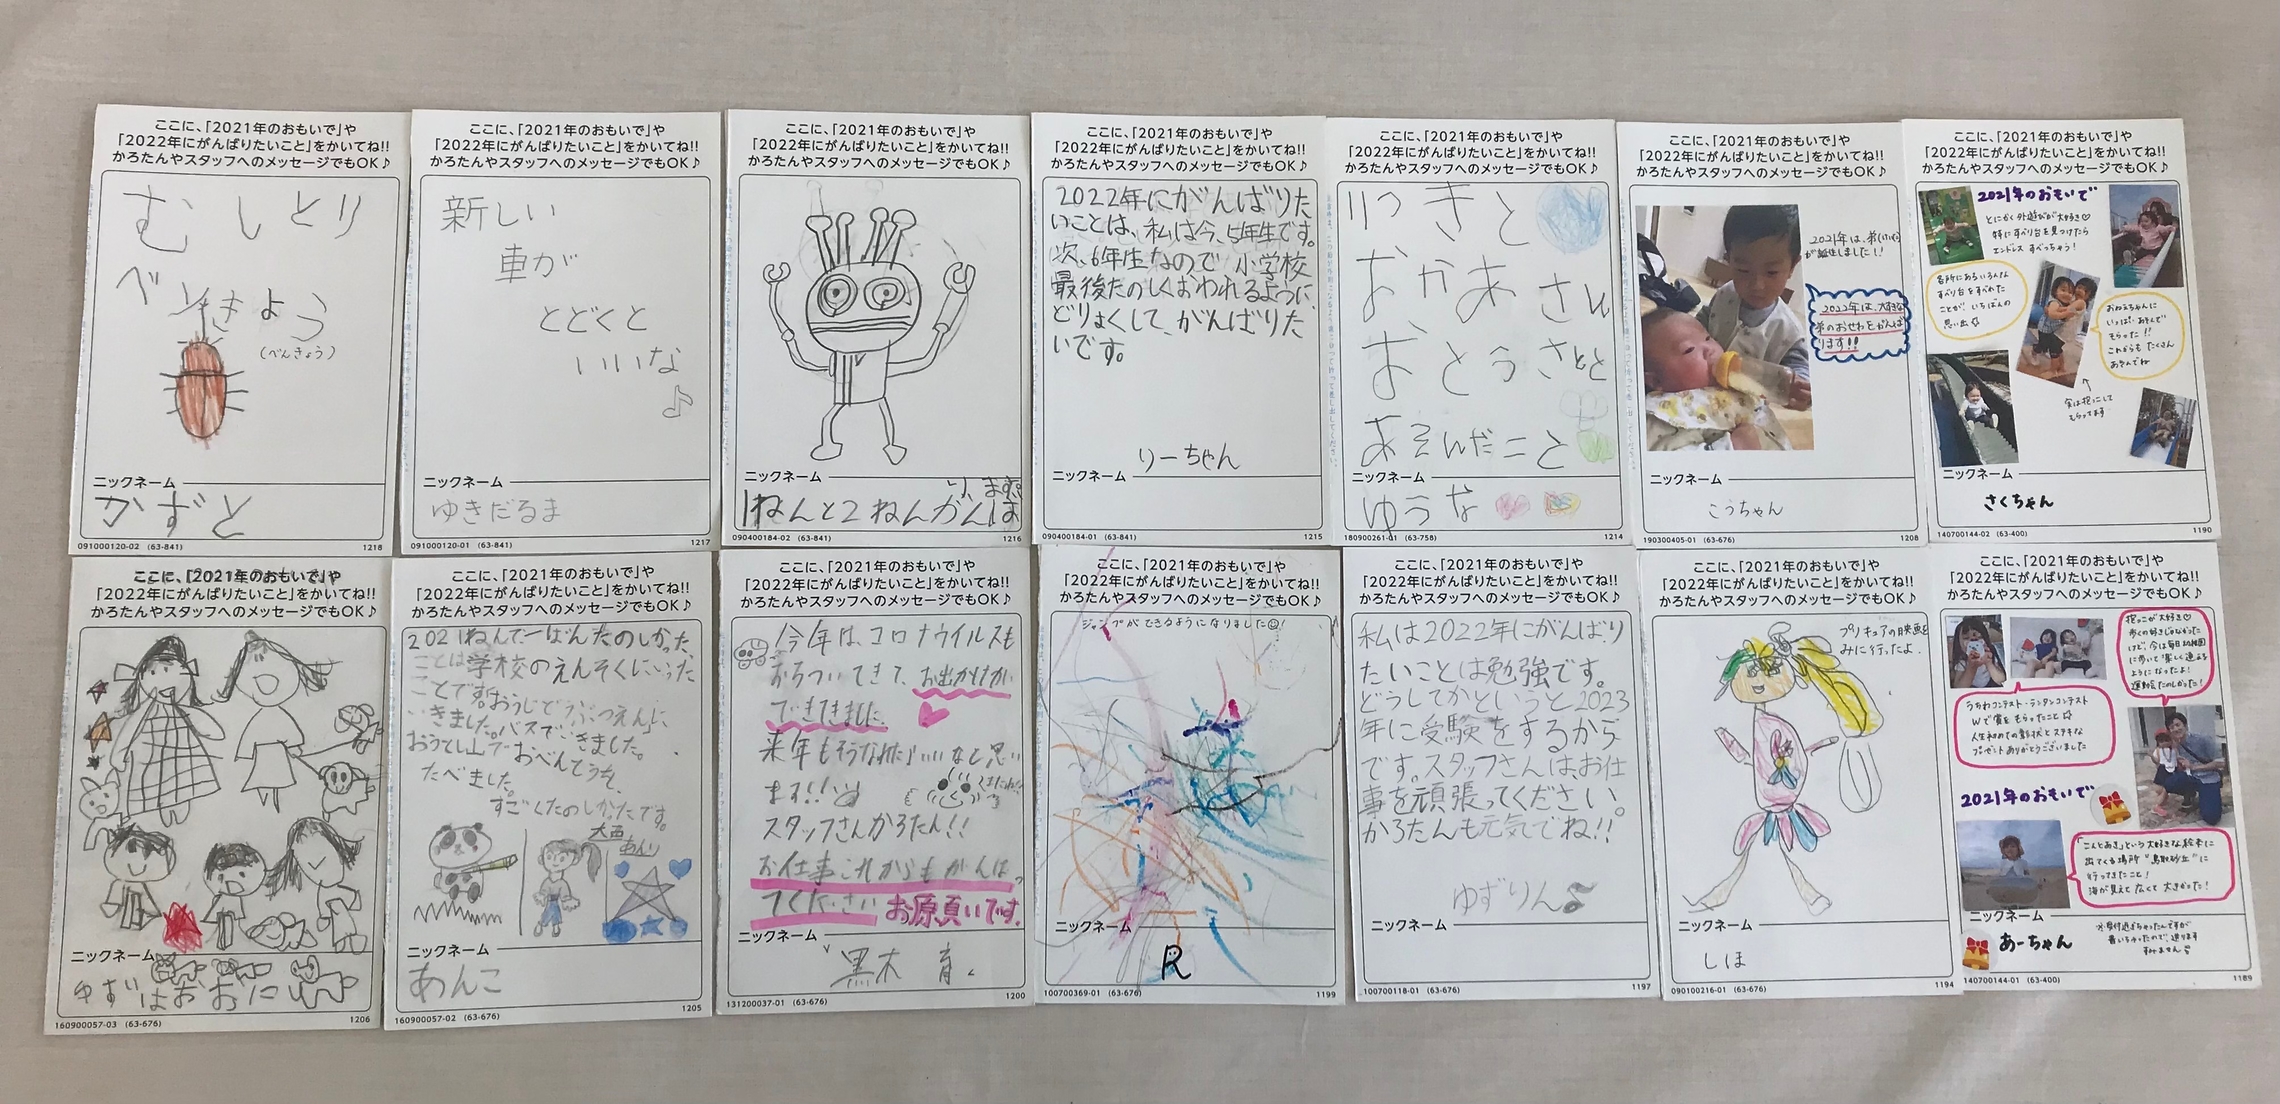 ここに、「2021年のおもいで」や
「2022年にがんばりたいこと」をかいてね!!
かろたんやスタッフへのメッセージでもOK♪
むしとり
べんきょう
(べんきょう)
ニックネーム
かずと
091000120-02 (63-841)
1218
ここに、「2021年のおもいで」や
「2022年にがんばりたいこと」をかいてね!!
かろたんやスタッフへのメッセージでもOK♪
新しい
車が
とどくと
いいな
♪
ニックネーム
ゆきだるま
091000120-01 (63-841)
1217
ここに、「2021年のおもいで」や
「2022年にがんばりたいこと」をかいてね!!
かろたんやスタッフへのメッセージでもOK♪
ニックネーム
1ねんと2ねんがんば
090400184-02 (63-841)
1216
ここに、「2021年のおもいで」や
「2022年にがんばりたいこと」をかいてね!!
かろたんやスタッフへのメッセージでもOK♪
2022年にがんばりた
いことは、私は今、5年生です。
次、6年生なので小学校
最後たのしくおわれるように、
どりょくして、がんばりた
いです。
りーちゃん
ニックネーム
090400184-01 (63-841)
1215
ここに、「2021年のおもいで」や
「2022年にがんばりたいこと」をかいてね!!
かろたんやスタッフへのメッセージでもOK♪
りつきと
おかあさん
おとうさとと
あそんだこと
ニックネーム
ゆうな
180900261-01 (63-758)
1214
ここに、「2021年のおもいで」や
「2022年にがんばりたいこと」をかいてね!!
かろたんやスタッフへのメッセージでもOK♪
2021年は、弟
が誕生しました!!
2022年は、大好きな
弟のおせわをがんば
ります!!
ニックネーム
こうちゃん
190300405-01 (63-676)
1208
ここに、「2021年のおもいで」や
「2022年にがんばりたいこと」をかいてね!!
かろたんやスタッフへのメッセージでもOK♪
2021年のおもいで
とにかく外遊びが大好き♡
特にすべり台を見つけたら
エンドレスすべっちゃう!
各所にあるいろんな
すべり台をすべれた
ことが、いちばんの
思い出
おねえちゃんに
いっぱいあそんで
もらった!!
これからもたくさん
あそんでね
実は抱っこして
もらってます
ニックネーム
さくちゃん
140700144-02 (63-400)
1190
ここに、「2021年のおもいで」や
「2022年にがんばりたいこと」をかいてね!!
かろたんやスタッフへのメッセージでもOK♪
ニックネーム
160900057-03 (63-676)
1206
ここに、「2021年のおもいで」や
「2022年にがんばりたいこと」をかいてね!!
かろたんやスタッフへのメッセージでもOK♪
2021ねんで一ばんたのしかった、
ことは学校のえんそくにいった
ことです。おうじどうぶつえんに、
いきました。バスでいきました。
おうてし山でおべんとうを、
たべました。
すごくたのしかたです。
ニックネーム
あんこ
160900057-02 (63-676)
1205
ここに、「2021年のおもいで」や
「2022年にがんばりたいこと」をかいてね!!
かろたんやスタッフへのメッセージでもOK♪
今年は、コロナウイルスも
おちついてきて、お出かけが
できてきました。
来年もそうなればいいなと思い
ます!!
スタッフさんかろたん!!
お仕事これからもがんばっ
てください お原頁いです。
ニックネーム
黒木 育
131200037-01 (63-676)
1200
ここに、「2021年のおもいで」や
「2022年にがんばりたいこと」をかいてね!!
かろたんやスタッフへのメッセージでもOK♪
ジャンプができるようになりました☺!
ニックネーム
R
100700369-01 (63-676)
1199
ここに、「2021年のおもいで」や
「2022年にがんばりたいこと」をかいてね!!
かろたんやスタッフへのメッセージでもOK♪
私は2022年にがんばり
たいことは勉強です。
どうしてかというと2023
年に受験をするから
です。スタッフさんは、お仕
事を頑張ってください。
かろたんも元気でね!!
ゆずりん♪
ニックネーム
100700118-01 (63-676)
1197
ここに、「2021年のおもいで」や
「2022年にがんばりたいこと」をかいてね!!
かろたんやスタッフへのメッセージでもOK♪
プリキュアの映画を
みに行ったよ.
ニックネーム
しほ
090100216-01 (63-676)
1194
ここに、「2021年のおもいで」や
「2022年にがんばりたいこと」をかいてね!!
かろたんやスタッフへのメッセージでもOK♪
抱っこが大好き♡
歩くの好きじゃなかった
けど、今は毎日幼稚園
に歩いて楽しく通える
ようになったよ!
運動会たのしかった!
うちわコンテスト・ランタンコンテスト
Wで賞をもらったこと
人生初めての賞状とステキな
プレゼントありがとうございました
2021年のおもいで
「こんとあき」という大好きな絵本に
出てくる場所“鳥取砂丘”に
行ってきたこと!
海が見えて広くて大きかった!
ニックネーム
あーちゃん
140700144-01 (63-400)
1189